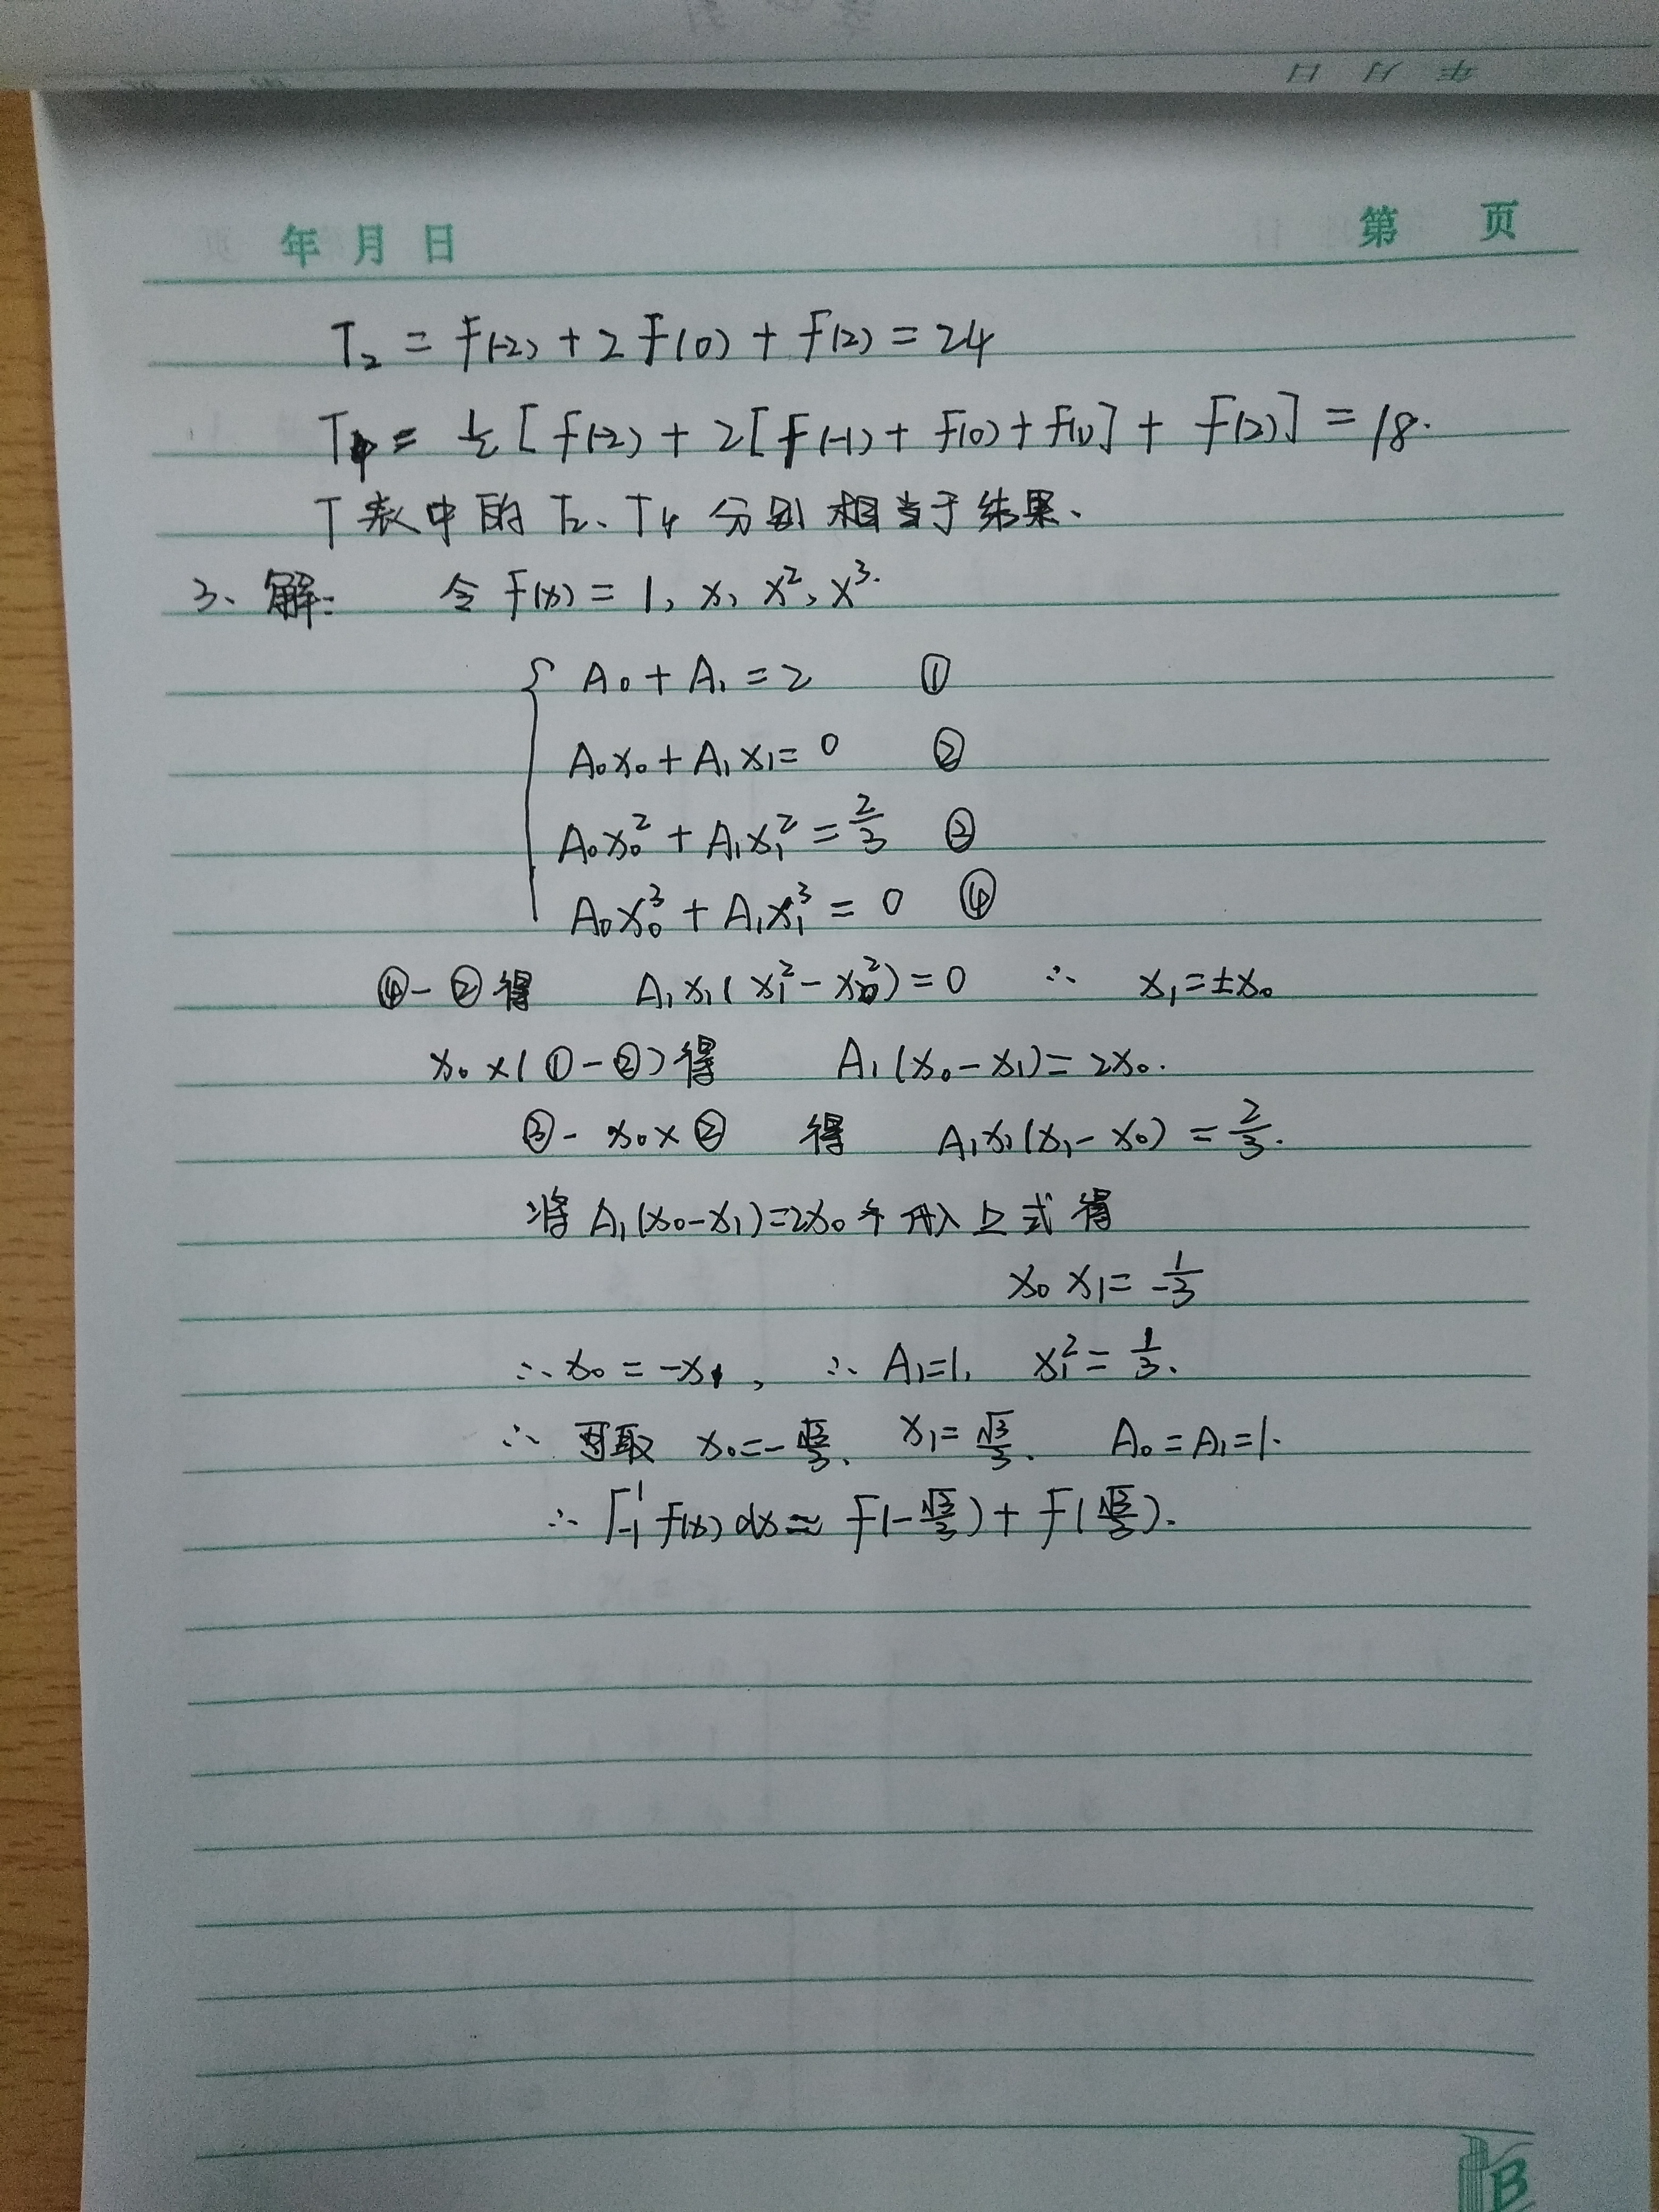 年 月 日
年 月 日 第 页
T₂ = f(-2) + 2f(0) + f(2) = 24
T₄ = ½ [f(-2) + 2[f(-1) + f(0) + f(1)] + f(2)] = 18.
T表中的 T₂、T₄ 分别相当于结果、
3、解: 令 f(x) = 1, x, x², x³.
{ A₀ + A₁ = 2 ①
A₀x₀ + A₁x₁ = 0 ②
A₀x₀² + A₁x₁² = 2/3 ③
A₀x₀³ + A₁x₁³ = 0 ④
④ - ② 得 A₁x₁(x₁² - x₀²) = 0 ∴ x₁ = ±x₀
x₀ × (① - ②) 得 A₁(x₀ - x₁) = 2x₀.
③ - x₀ × ② 得 A₁x₁(x₁ - x₀) = 2/3.
将 A₁(x₀ - x₁) = 2x₀ 入上式得
x₀ x₁ = -1/3
∴ x₀ = -x₁, ∴ A₁ = 1, x₁² = 1/3.
∴ 可取 x₀ = -√3/3, x₁ = √3/3. A₀ = A₁ = 1.
∴ ∫₋₁¹ f(x) dx ≈ f(-√3/3) + f(√3/3).
B